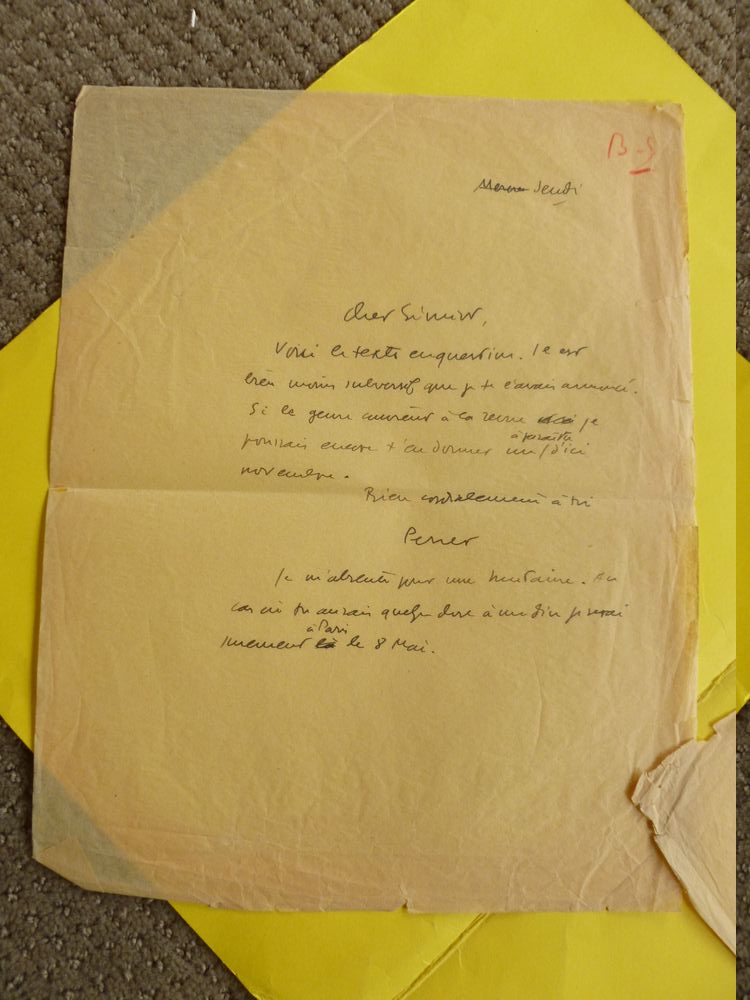 B-S
Jeudi
Cher Simier,
Voici le texte en question. Il est
bien moins subversif que je te l'avais annoncé.
Si le genre convient à la revue je
à paraître
pourrais encore t'en donner un / d'ici
novembre.
Bien cordialement à toi
Perret
Je m'absente pour une huitaine. Au
cas où tu aurais quelque chose à me dire je serai
à Paris
surement le 8 Mai.